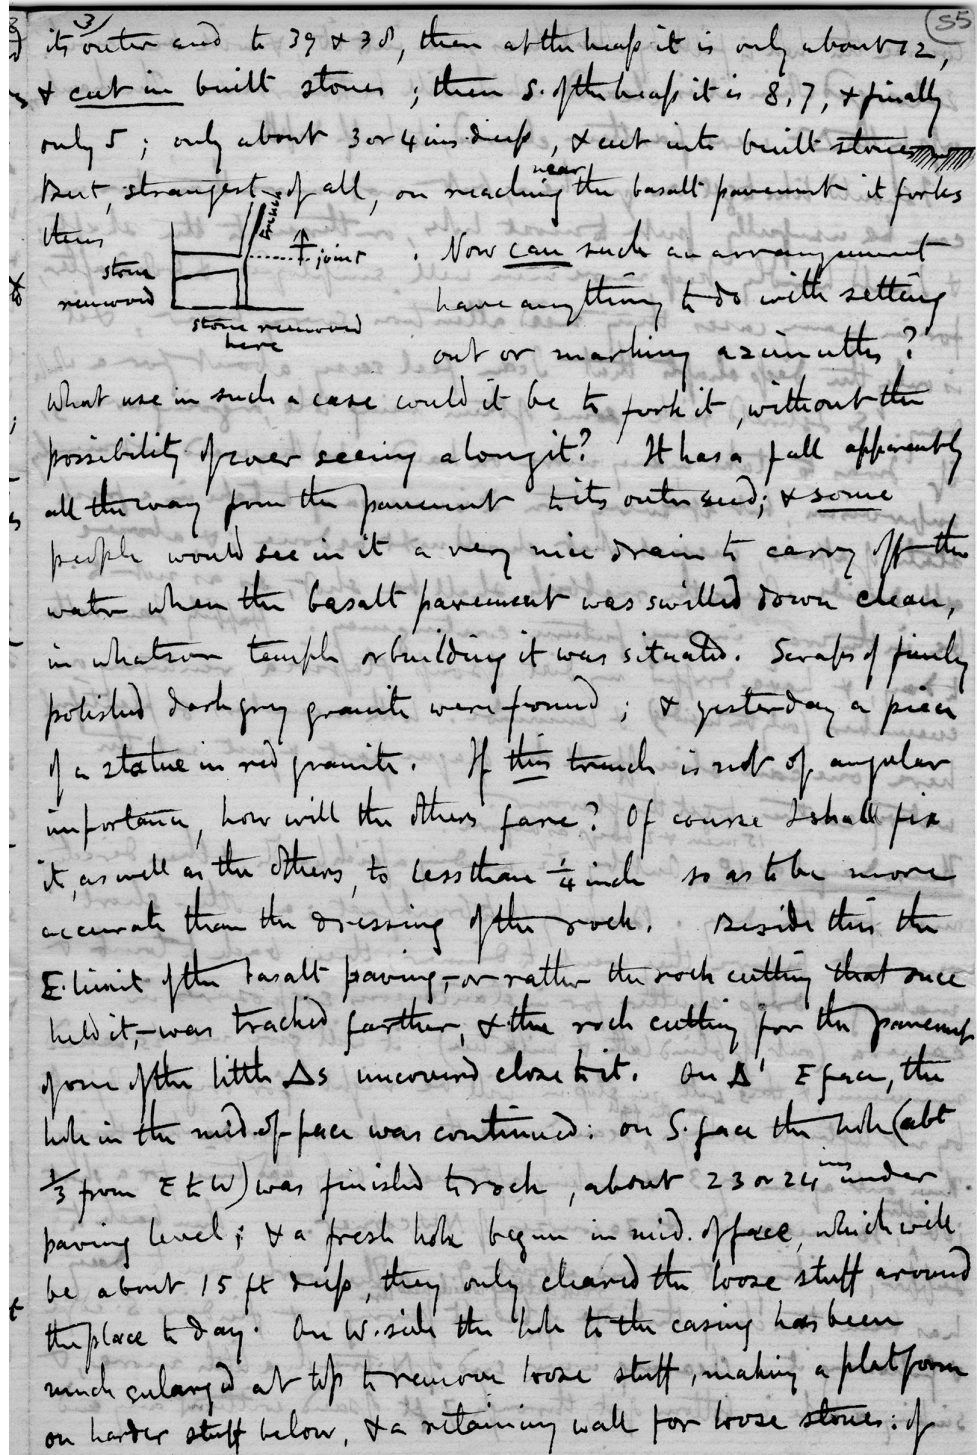 3/ 55
its outer end to 39 & 38, then at the heap it is only about 12,
& cut in built stones ; then S. of the heap it is 8, 7, & finally
only 5 ; only about 3 or 4 ins deep, & cut into built stones
But, strangest of all, on reaching near the basalt pavement it forks
thus
trench
joint
stone
removed
stone removed
here
. Now can such an arrangement
have anything to do with setting
out or marking azimuths ?
What use in such a case could it be to fork it, without the
possibility of ever seeing along it? It has a fall apparently
all the way from the pavement to its outer end; & some
people would see in it a very nice drain to carry off the
water when the basalt pavement was swilled down clean,
in whatsoer temple or building it was situated. Scraps of finely
polished dark grey granite were found ; & yesterday a piece
of a statue in red granite. If this trench is not of angular
importance, how will the others fare? Of course I shall fix
it, as well as the others, to less than 1/4 inch so as to be more
accurate than the dressing of the rock. Beside this the
E. limit of the basalt paving,–or rather the rock cutting that once
held it,–was tracked farther, & the rock cutting for the pavement
of one of the little Δs uncovered close to it. On Δ' E face, the
hole in the mid. of face was continued: on S. face the hole (abt
1/3 from E to W) was finished to rock, about 23 or 24 ins under
paving level; & a fresh hole begun in mid. of face, which will
be about 15 ft deep, they only cleared the loose stuff around
the place to day. On W. side the hole to the casing has been
much enlarged at top to remove loose stuff, making a platform
on harder stuff below, & a retaining wall for loose stones: of